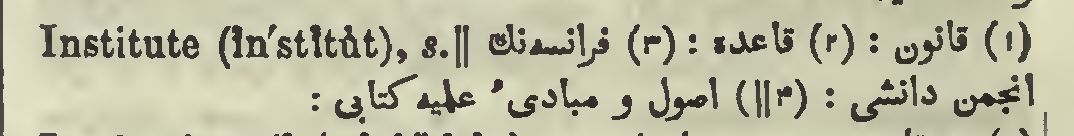 Institute (ĭn′stĭtūt), s.|| (۱) قانون : (۲) قاعده : (۳) فرانسه‌نك
انجمن دانشی : (۴||) اصول و مبادیٔ علمیه كتابی :